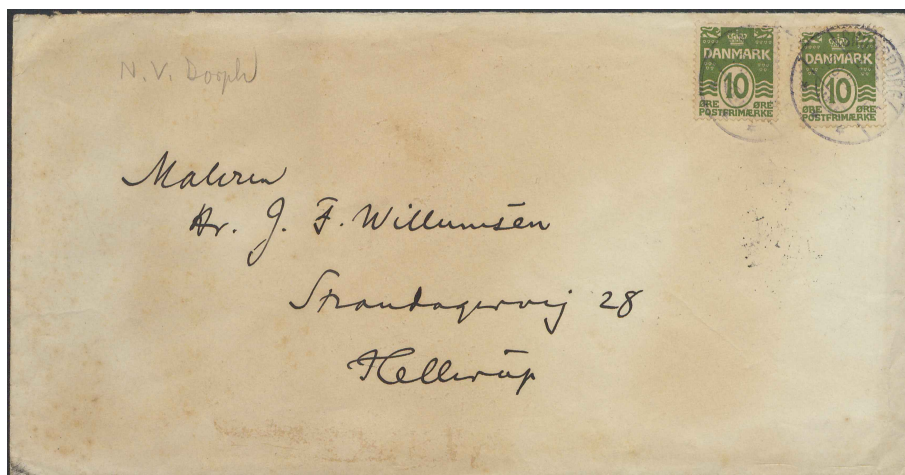 N. V. Dorph
DANMARK
10
ØRE ØRE
POSTFRIMÆRKE
DANMARK
10
ØRE ØRE
POSTFRIMÆRKE
Maleren
Hr. J. F. Willumsen
Strandagervej 28
Hellerup